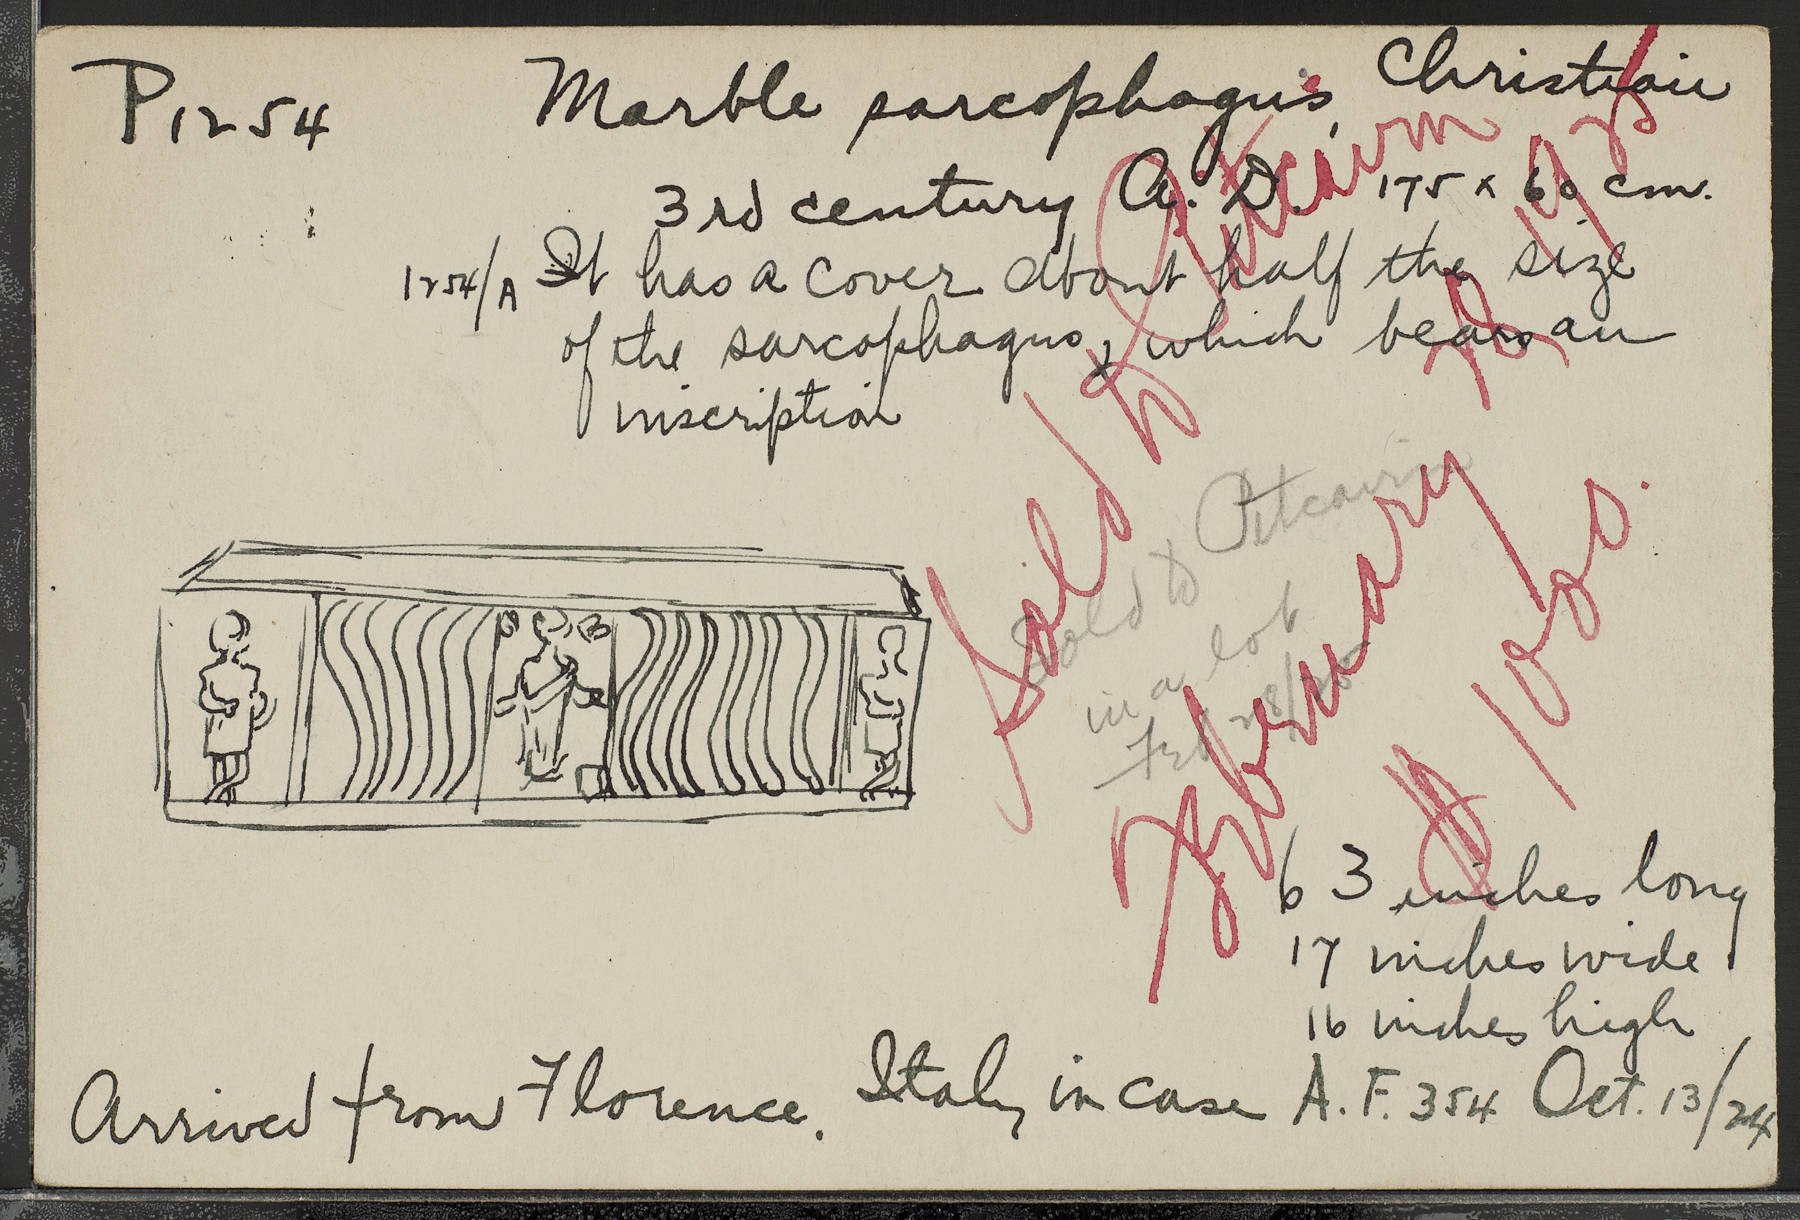 P1254
Marble sarcophagus, Christian
3rd century A. D. 175 x 60 cm.
1254/A It has a cover about half the size
of the sarcophagus, which bears an
inscription
Sold Pitcairn
February 28 1925
Sold to Pitcairn
in a lot
Feb 28/25
63 inches long
17 inches wide
16 inches high
Arrived from Florence. Italy in case A.F. 354 Oct. 13/24